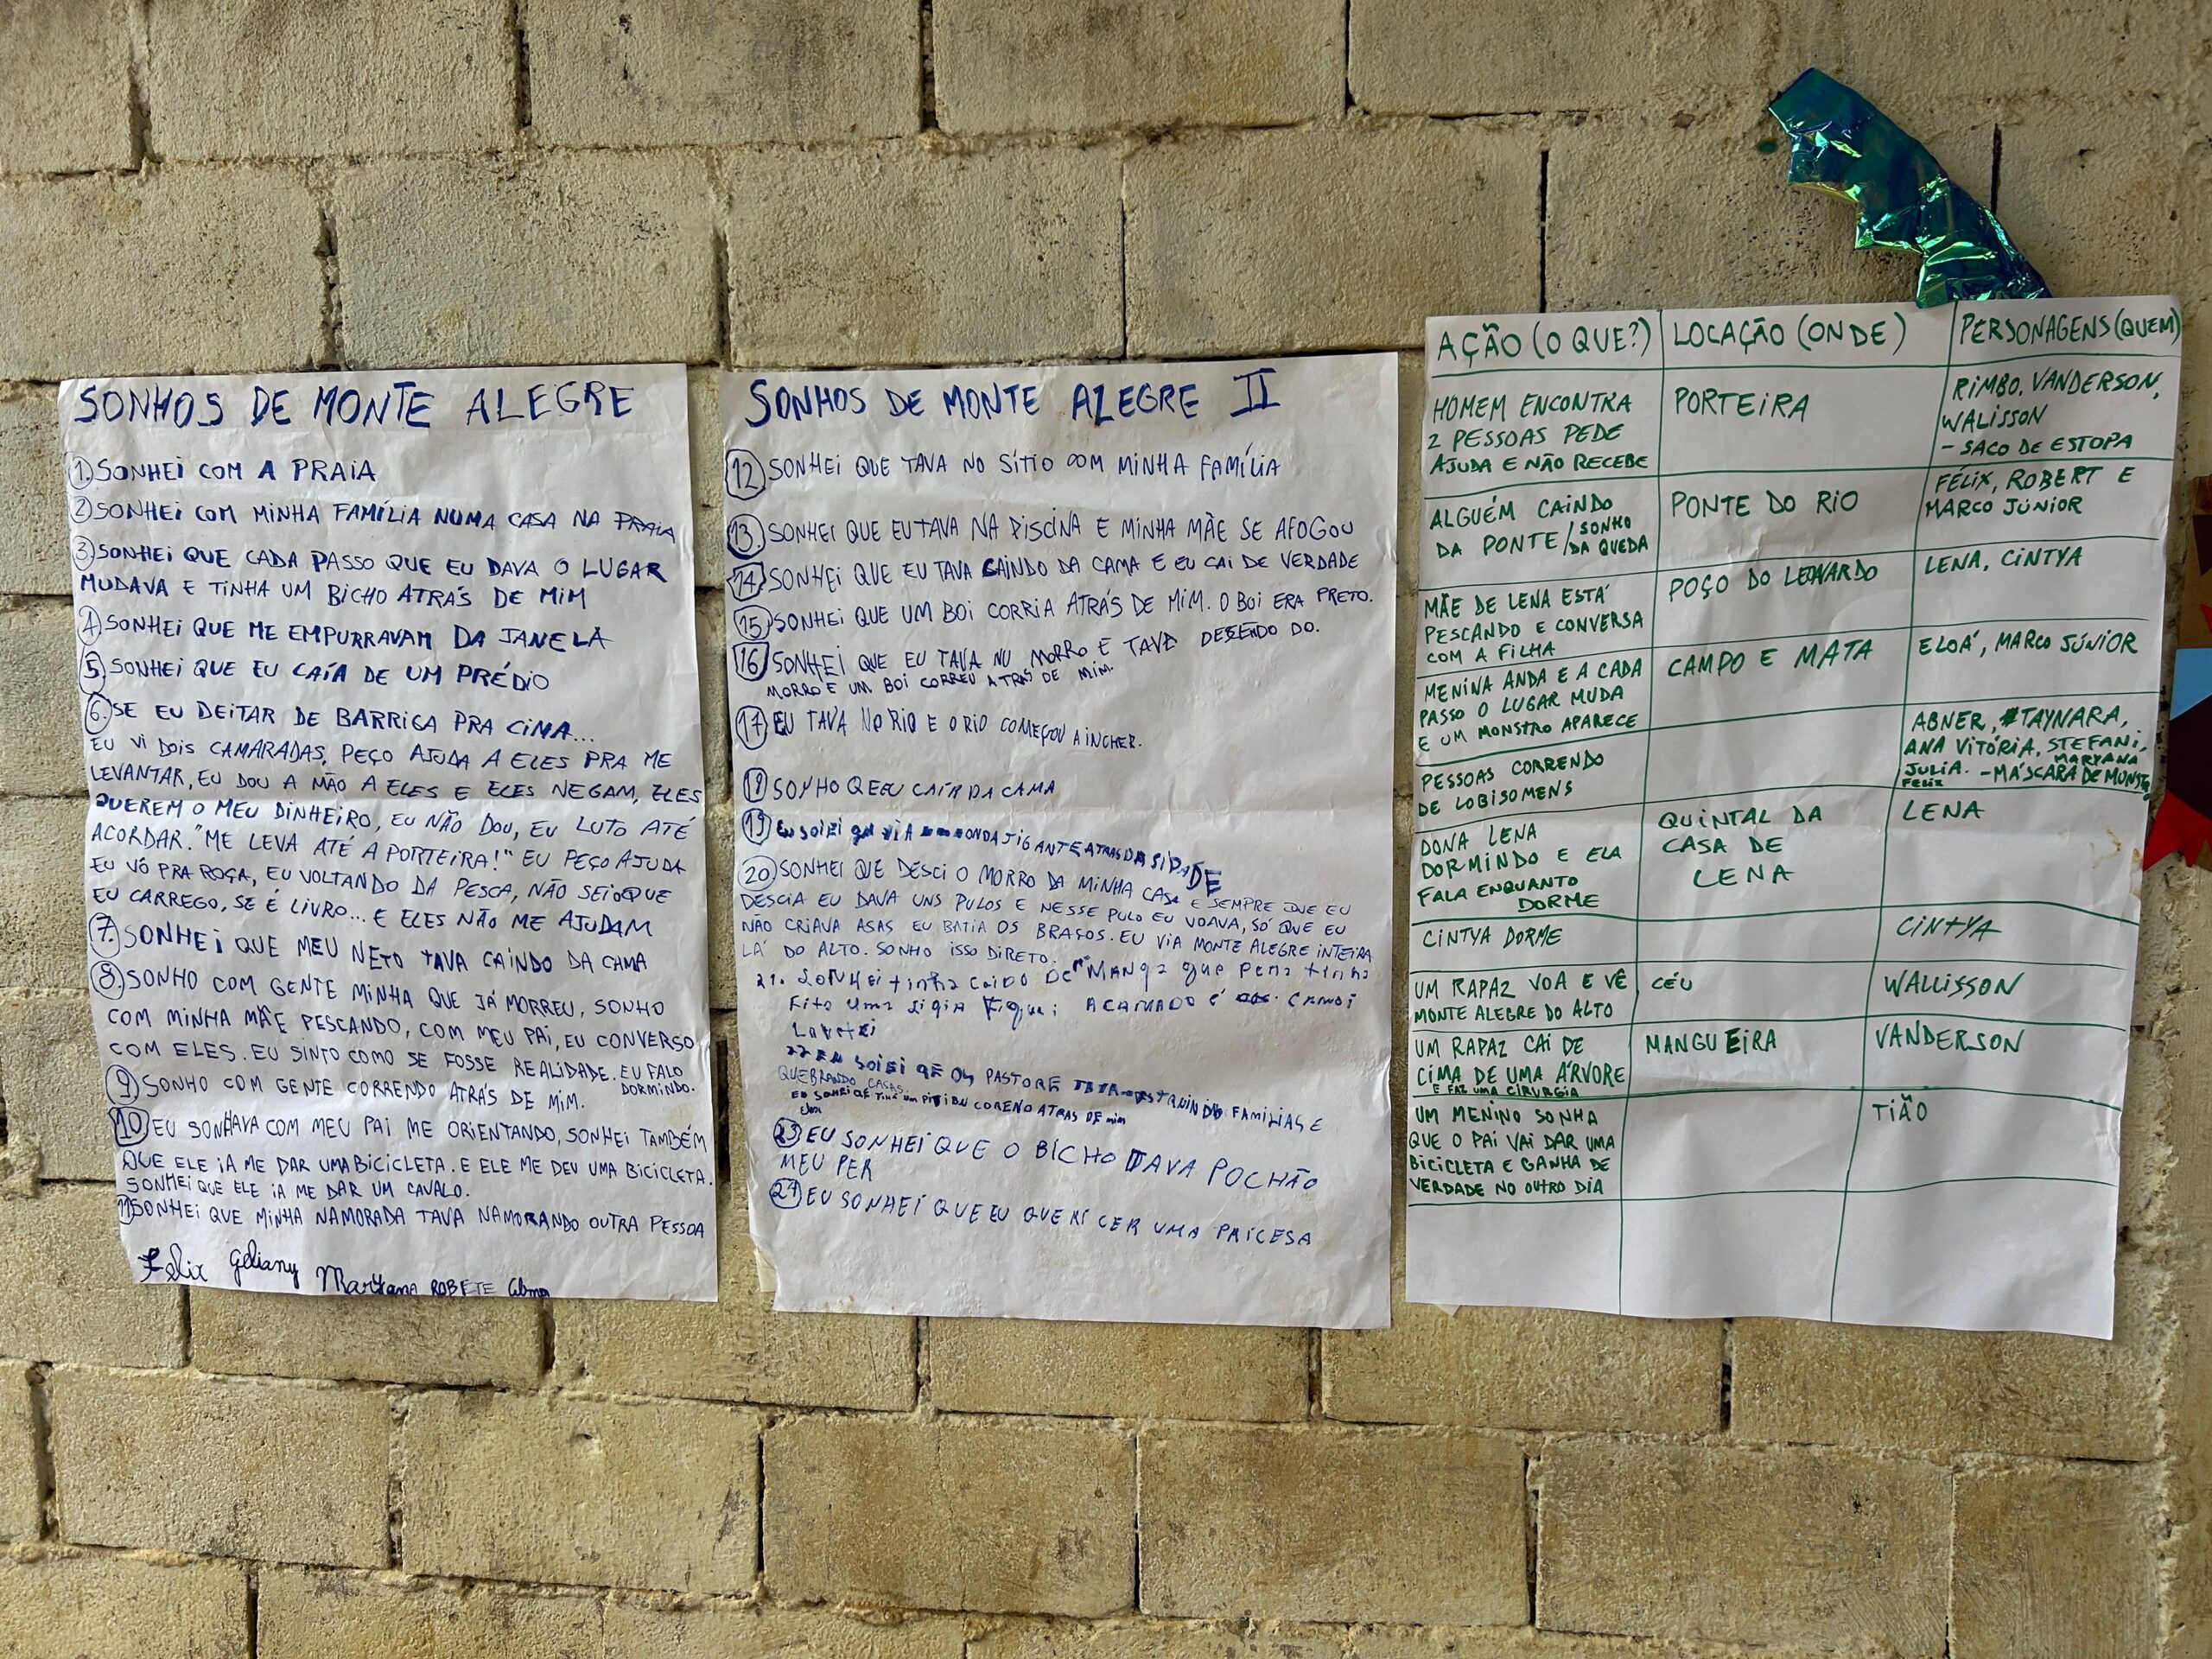 SONHOS DE MONTE ALEGRE
1. SONHEI COM A PRAIA
2 SONHEI COM MINHA FAMÍLIA NUMA CASA NA PRAIA
3 SONHEI QUE CADA PASSO QUE EU DAVA O LUGAR
MUDAVA E TINHA UM BICHO ATRÁS DE MIM
4 SONHEI QUE ME EMPURRAVAM DA JANELA
5 SONHEI QUE EU CAÍA DE UM PRÉDIO
6. SE EU DEITAR DE BARRIGA PRA CIMA...
EU VI DOIS CAMARADAS, PEÇO AJUDA A ELES PRA ME
LEVANTAR, EU DOU A MÃO A ELES E ELES NEGAM, ELES
QUEREM O MEU DINHEIRO, EU NÃO DOU, EU LUTO ATÉ
ACORDAR. "ME LEVA ATÉ A PORTEIRA!" EU PEÇO AJUDA
EU VÔ PRA ROÇA, EU VOLTANDO DA PESCA, NÃO SEI O QUE
EU CARREGO, SE É LIVRO... E ELES NÃO ME AJUDAM
7. SONHEI QUE MEU NETO TAVA CAINDO DA CAMA
8. SONHO COM GENTE MINHA QUE JÁ MORREU, SONHO
COM MINHA MÃE PESCANDO, COM MEU PAI, EU CONVERSO
COM ELES. EU SINTO COMO SE FOSSE REALIDADE. EU FALO
DORMINDO.
9 SONHO COM GENTE CORRENDO ATRÁS DE MIM.
10 EU SONHAVA COM MEU PAI ME ORIENTANDO, SONHEI TAMBÉM
QUE ELE IA ME DAR UMA BICICLETA. E ELE ME DEU UMA BICICLETA.
SONHEI QUE ELE IA ME DAR UM CAVALO.
11 SONHEI QUE MINHA NAMORADA TAVA NAMORANDO OUTRA PESSOA
Felix Geliany Maryana ROBETE
SONHOS DE MONTE ALEGRE II
12 SONHEI QUE TAVA NO SÍTIO COM MINHA FAMÍLIA
13. SONHEI QUE EU TAVA NA PISCINA E MINHA MÃE SE AFOGOU
14. SONHEI QUE EU TAVA CAINDO DA CAMA E EU CAI DE VERDADE
15 SONHEI QUE UM BOI CORRIA ATRÁS DE MIM. O BOI ERA PRETO.
16 SONHEI QUE EU TAVA NU MORRO E TAVA DESENDO DO.
MORRO E UM BOI CORREU ATRÁS DE MIM.
17 EU TAVA NO RIO E O RIO COMEÇOU A INCHER.
18 SONHO QEEU CAÍR DA CAMA
19 EU SOIEI VIA ONDA JIGANTE ATRAS DA SIDADE
20 SONHEI QUE DESCI O MORRO DA MINHA CASA E SEMPRE QUE EU
DESCIA EU DAVA UNS PULOS E NESSE PULO EU VOAVA, SÓ QUE EU
NÃO CRIAVA ASAS EU BATIA OS BRAÇOS. EU VIA MONTE ALEGRE INTEIRA
LÁ DO ALTO. SONHO ISSO DIRETO.
21. SONHEI tinha caido De Manga que pena tinha
Fito uma
22 EU SOIEI QE OS PASTORE FAMILIAS E
QUEBRANDO CASAS
EU SONHEI QE TINA UM PITIBU CORENO ATRAS DE mim
23 EU SONHEI QUE O BICHO TAVA POCHÃO
MEU PER
24 EU SONHEI QUE EU QUERI CER UMA PRICESA
AÇÃO (O QUE?) LOCAÇÃO (ONDE) PERSONAGENS (QUEM)
HOMEM ENCONTRA
2 PESSOAS PEDE
AJUDA E NÃO RECEBE
PORTEIRA
RIMBO, VANDERSON,
WALISSON
- SACO DE ESTOPA
ALGUÉM CAINDO
DA PONTE / SONHO
DA QUEDA
PONTE DO RIO
FÉLIX, ROBERT E
MARCO JÚNIOR
MÃE DE LENA ESTÁ
PESCANDO E CONVERSA
COM A FILHA
POÇO DO LEONARDO
LENA, CINTYA
MENINA ANDA E A CADA
PASSO O LUGAR MUDA
E UM MONSTRO APARECE
CAMPO E MATA
ELOÁ, MARCO JÚNIOR
PESSOAS CORRENDO
DE LOBISOMENS
ABNER, TAYNARA,
ANA VITÓRIA, STEFANI,
MARYANA
JULIA. - MÁSCARA DE MONSTRO
FELIX
DONA LENA
DORMINDO E ELA
FALA ENQUANTO
DORME
QUINTAL DA
CASA DE
LENA
LENA
CINTYA DORME
CINTYA
UM RAPAZ VOA E VÊ
MONTE ALEGRE DO ALTO
CÉU
WALLISSON
UM RAPAZ CAI DE
CIMA DE UMA ÁRVORE
E FAZ UMA CIRURGIA
MANGUEIRA
VANDERSON
UM MENINO SONHA
QUE O PAI VAI DAR UMA
BICICLETA E GANHA DE
VERDADE NO OUTRO DIA
TIÃO